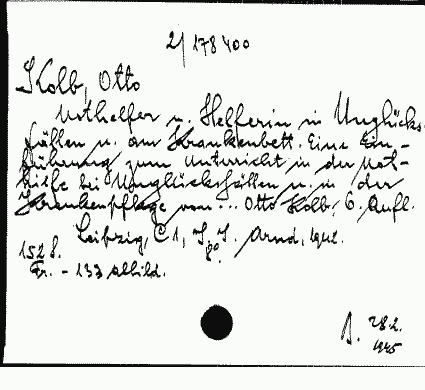 2/178400
Kolb, Otto
Nothelfer u. Helferin in Unglücks-
fällen u. am Krankenbett. Eine Ein-
führung zum Unterricht in der Not-
hilfe bei Unglücksfällen u. in der
Krankenpflege von... Otto Kolb, 6. Aufl.
Leipzig, C 1, Arnd, 1942.
8°.
152 S.
Fr. - 133 Abbild.
28.2.
1945